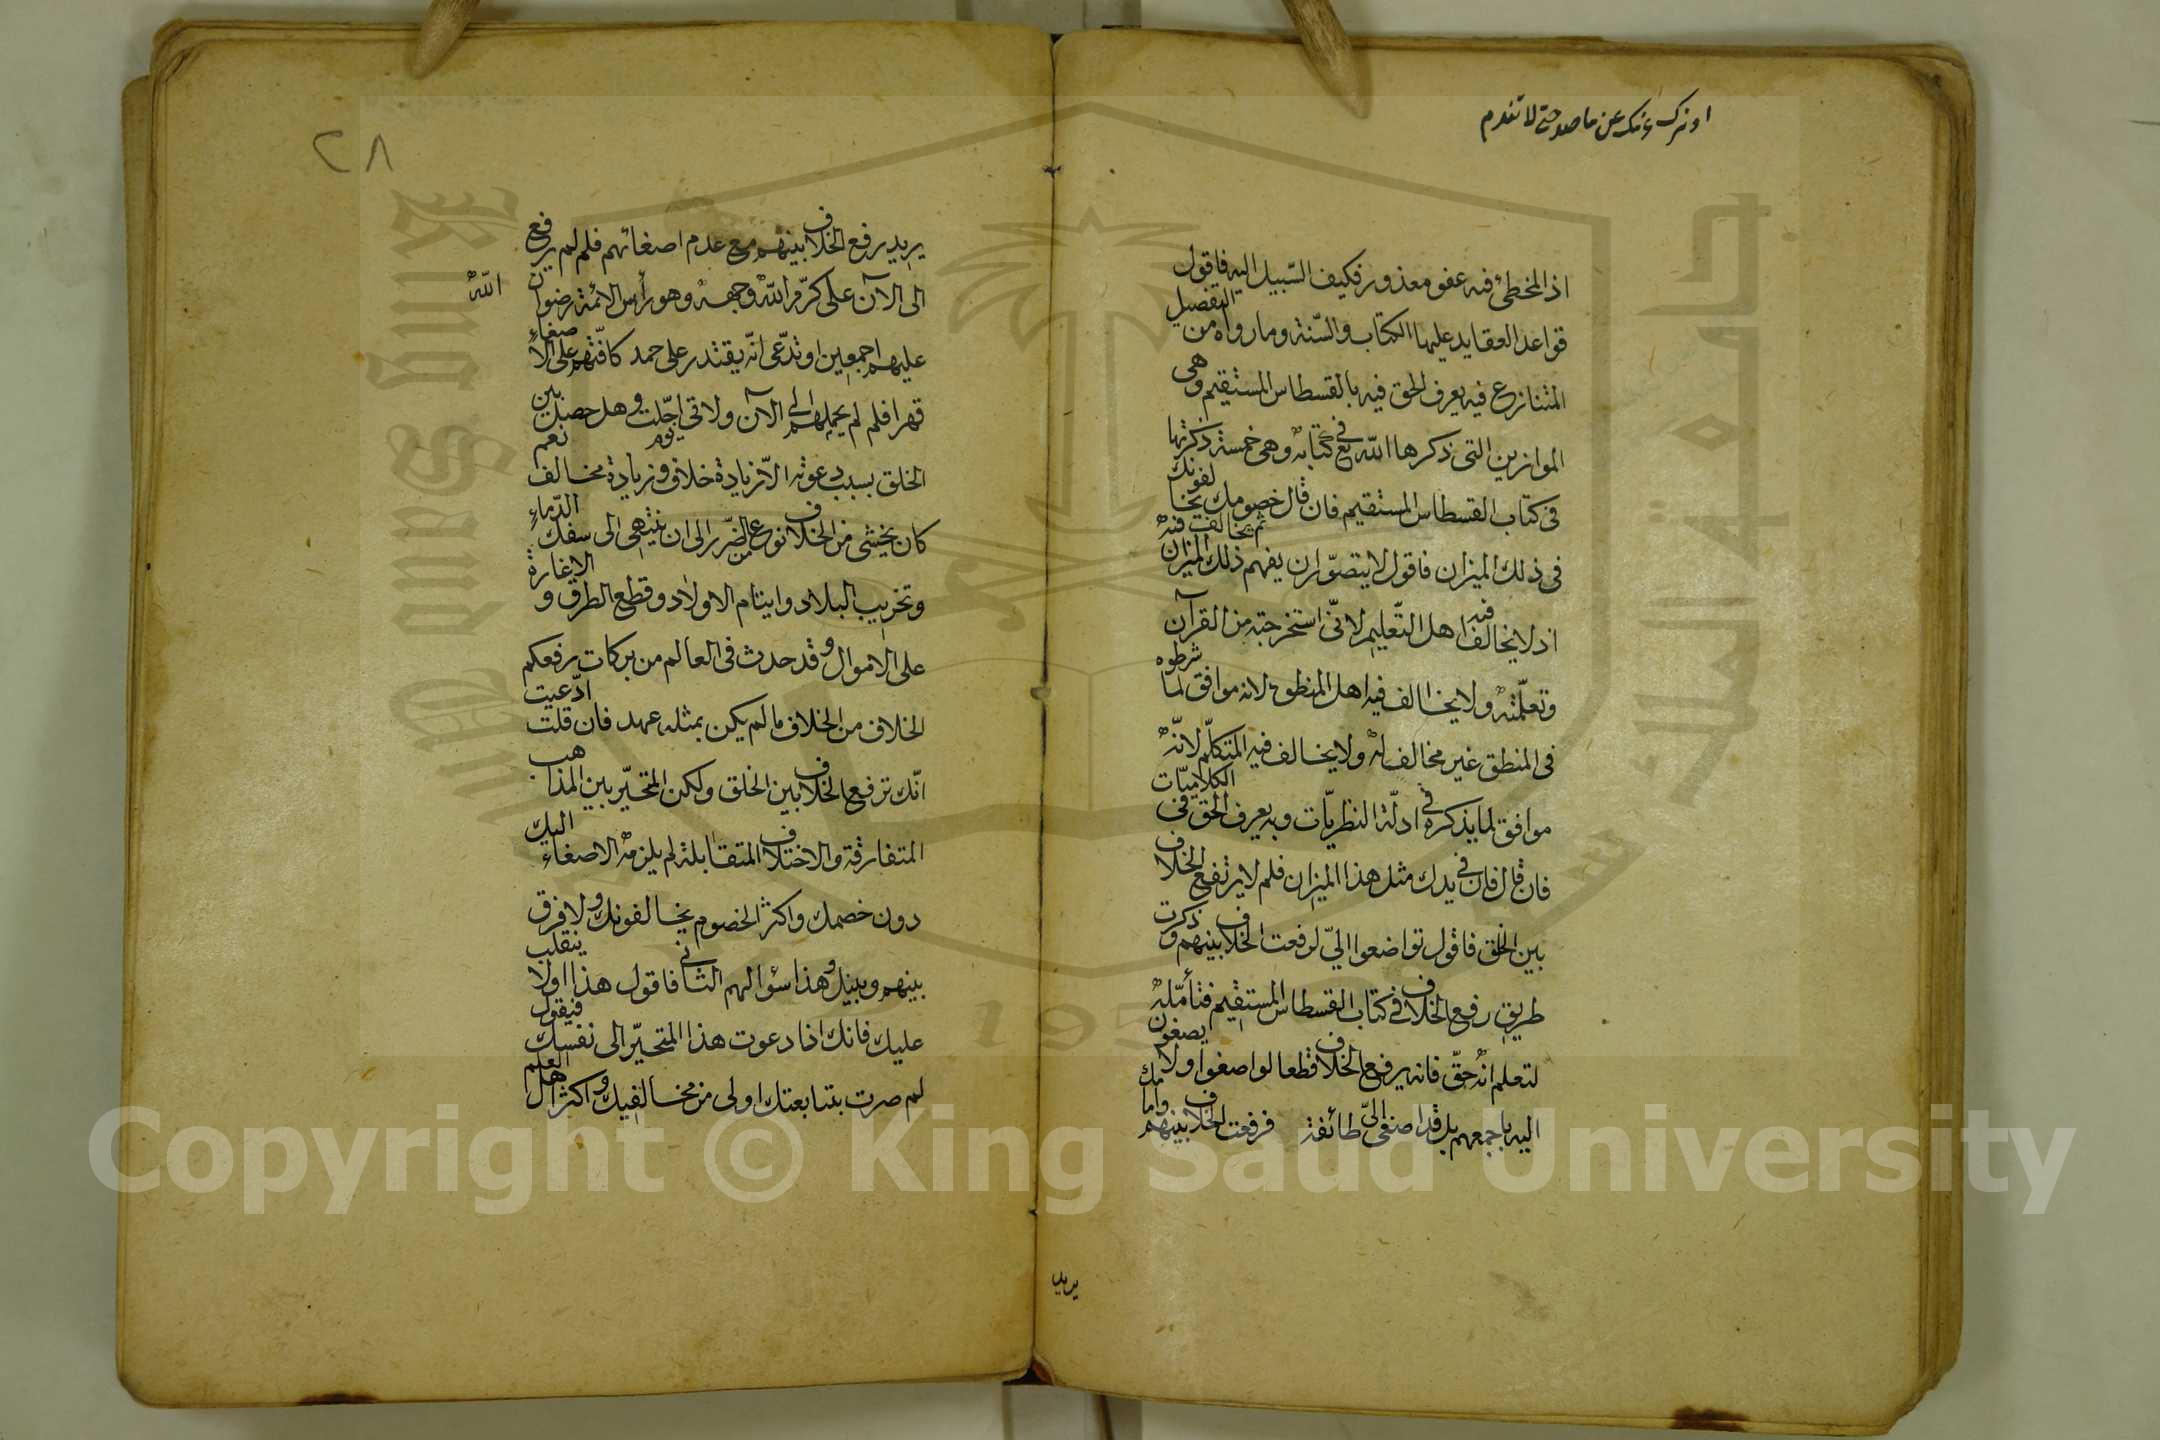 اذ المخطئ فيه عفو معذور فكيف السبيل اليه فاقول
قواعد العقايد عليها الكتاب والسنة وما رواه من التفصيل
المتنازع فيه يعرف الحق فيه بالقسطاس المستقيم وهى
الموازين التى ذكرها الله تع فى كتابه وهى خمسة ذكرتها
فى كتاب القسطاس المستقيم فان قال خصومك يخالفونك
فى ذلك الميزان فاقول لا يتصوّر ان يفهم ذلك الميزان ثم يخالف فيه
اذ لا يخالف فيه اهل التّعليم لانّى استخرجته من القرآن
وتعلّمته ولا يخالف فيه اهل المنطق لانه موافق لما شرطوه
فى المنطق غير مخالف له ولا يخالف فيه المتكلّم لانّه
موافق لما يذكره فى ادلّة النظريّات وبه يعرف الحق فى الكلاميّات
فان قال فان فى يدك مثل هذا الميزان فلم لا يرتفع الخلاف
بين الخلق فاقول تواضعوا اليّ لرفعت الخلاف بينهم وذكرت
طريق رفع الخلاف فى كتاب القسطاس المستقيم فتأمّله
لتعلم انه حقّ فانه يرفع الخلاف قطعا لو اصغوا ولا يصغون
اليه باجمعهم بل قد اصغى اليّ طائفة فرفعت الخلاف بينهم وامامك
يريد
٢٨
يريد رفع الخلاف بينهم مع عدم اصغائهم فلم لم يرفع
الى الآن على كرّم الله وجهه وهو رأس الائمة رضوان الله
عليهم اجمعين او تدّعى انّه يقتدر على حمد كافّتهم على الاصغاء
قهرا فلم لم يحملهم الى الآن ولاتى يوم اجّلت وهل حصل بين
الخلق بسبب دعوته الّا زيادة خلاف وزيادة مخالف نعم
كان يخشى من الخلاف نوع من الضّرر الى ان ينتهى الى سفك الدّماء
وتخريب البلاد وايتام الاولاد وقطع الطرق والاغارة
على الاموال وقد حدث فى العالم من بركات رفعكم
الخلاف من الخلاف ما لم يكن بمثله عهد فان قلت ادّعيت
انّك ترفع الخلاف بين الخلق ولكن المتحيّر بين المذاهب
المتفارقة والاختلاف المتقابلة لم يلزمه الاصغاء اليك
دون خصمك واكثر الخصوم يخالفونك ولا فرق
بينهم وبينك وهذا سؤالهم الثانى فاقول هذا اولا ينقلب
عليك فانك اذا دعوت هذا المتحيّر الى نفسك فيقول
لم صرت بمتابعتك اولى من مخالفيك واكثر اهل العلم
Copyright © King Saud University